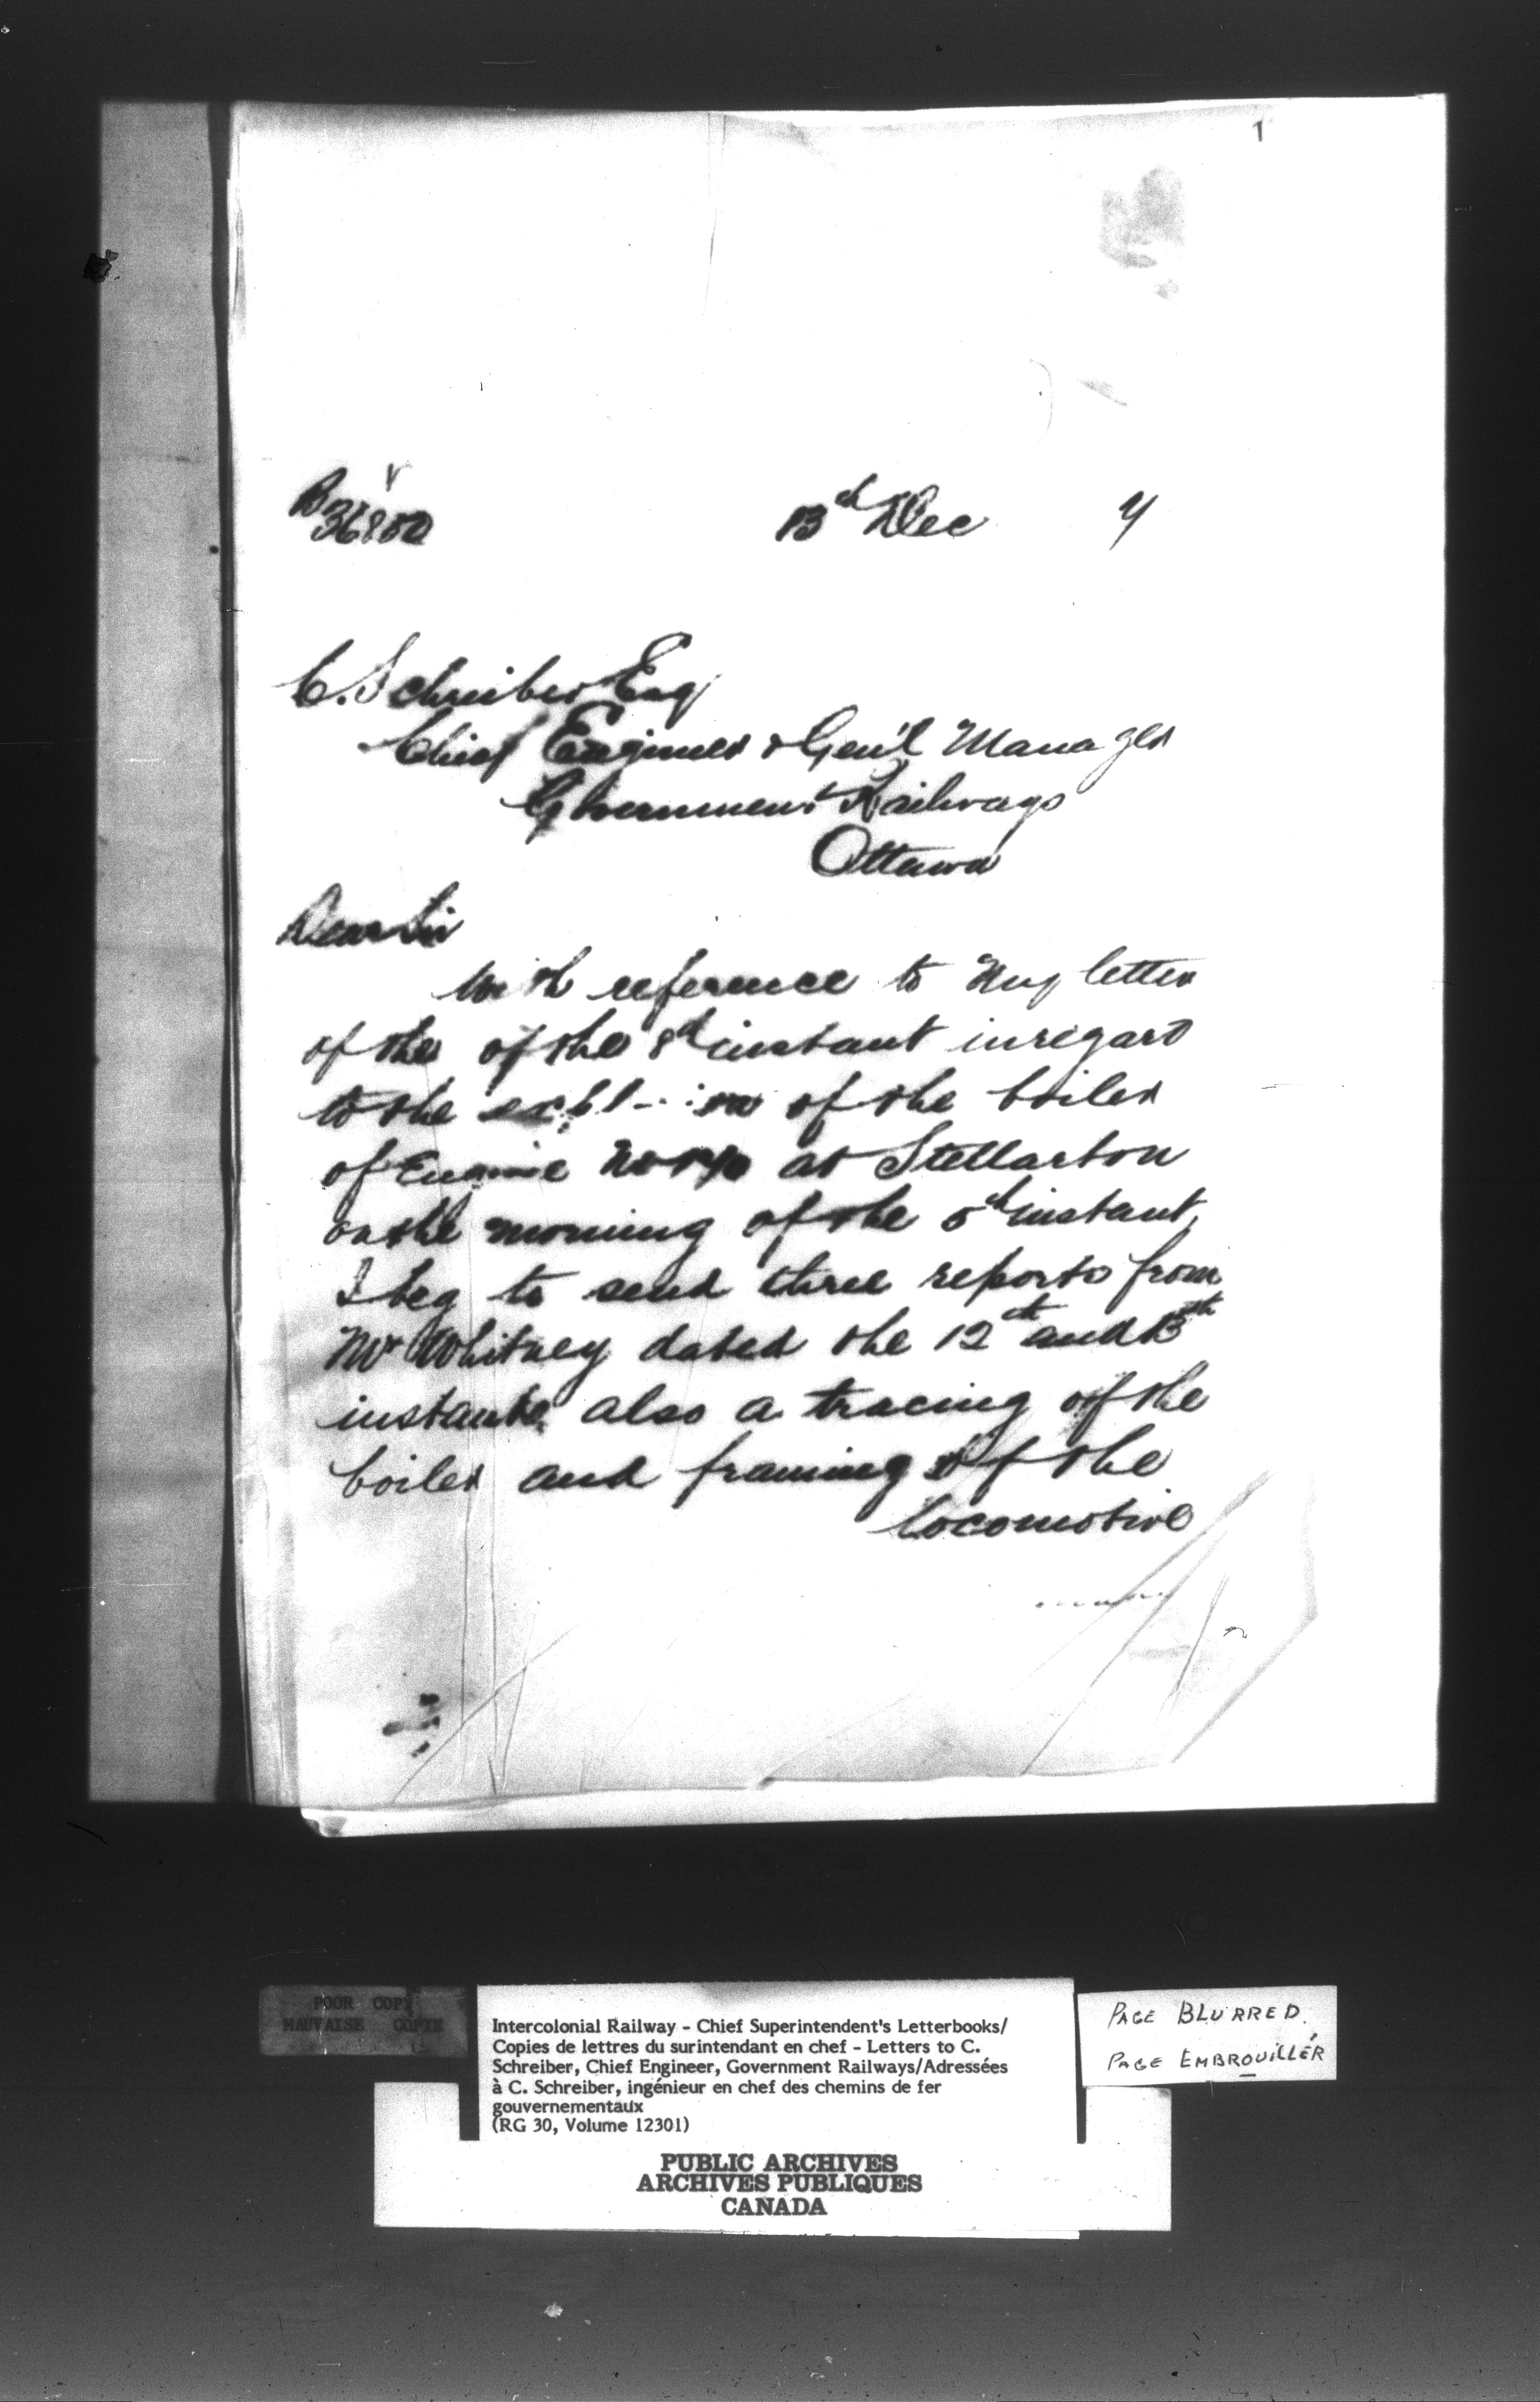 1
B 36850
13th Dec 7
C. Schreiber Esq
Chief Engineer & Gen'l Manager
Government Railways
Ottawa
Dear Sir
With reference to my letter
of the of the 8th instant in regard
to the of the boiler
of Engine No at Stellarton
on the morning of the 5th instant,
I beg to send three reports from
Mr Whitney dated the 12th and 13th
instants, also a tracing of the
boiler and framing of the
locomotive
POOR COPY
MAUVAISE COPIE
Intercolonial Railway - Chief Superintendent's Letterbooks/
Copies de lettres du surintendant en chef - Letters to C.
Schreiber, Chief Engineer, Government Railways/Adressées
à C. Schreiber, ingénieur en chef des chemins de fer
gouvernementaux
(RG 30, Volume 12301)
PAGE BLURRED.
PAGE EMBROUILLÉR
PUBLIC ARCHIVES
ARCHIVES PUBLIQUES
CANADA